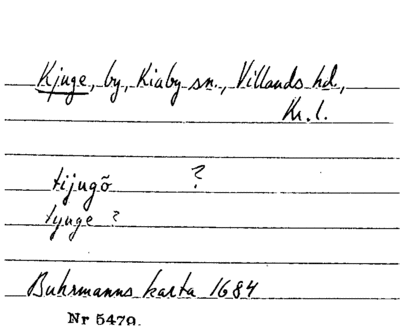 Kjuge, by, Kiaby sn., Villands hd,
Kr. l.
tijugõ ?
tyuge ?
Buhrmanns karta 1684
Nr 5479.